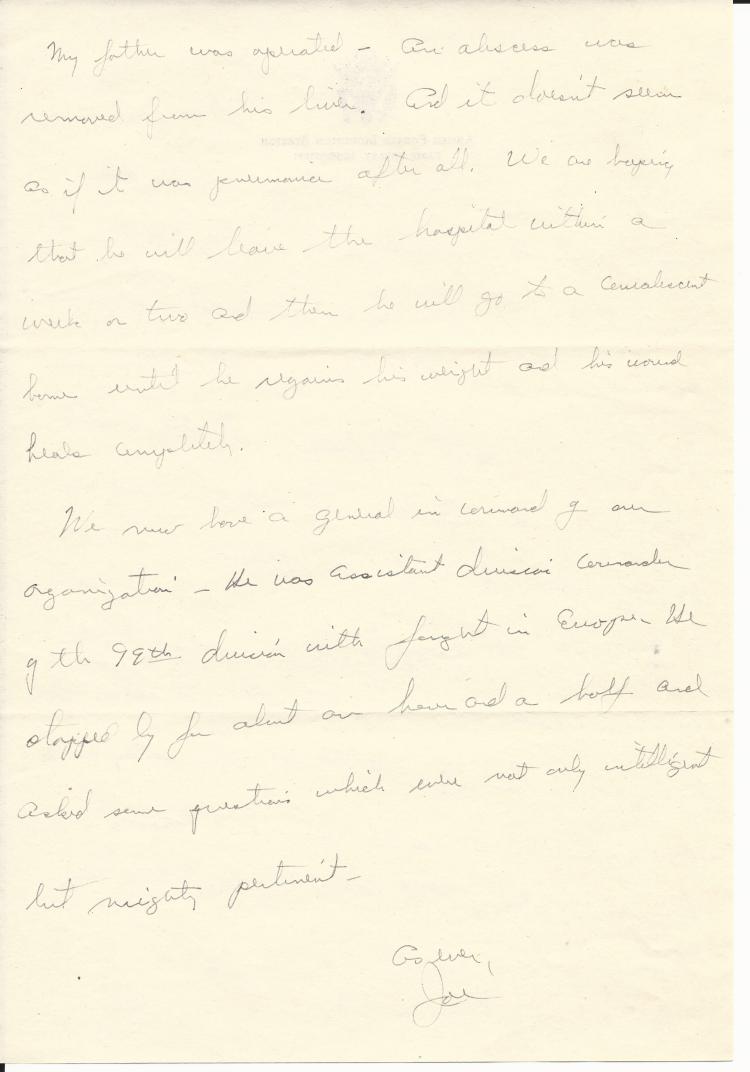 My father was operated – An abscess was
removed from his liver. And it doesn't seem
as if it was after all. We are hoping
that he will leave the hospital within a
week or two and then he will go to a convalescent
home until he regains his weight and his wound
heals completely.
We now have a general in command of our
organization – He was assistant division commander
of the 99th division with fought in Europe. He
stopped by for about an hour and a half and
asked some questions which were not only intelligent
but mighty pertinent –
As ever,
Joe